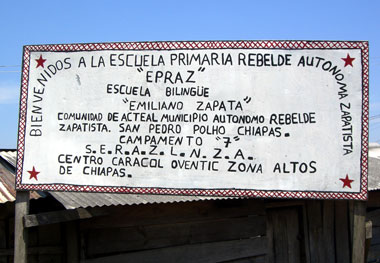 BIENVENIDOS A LA ESCUELA PRIMARIA REBELDE AUTONOMA ZAPATISTA
"EPRAZ"
ESCUELA BILINGÜE
"EMILIANO ZAPATA"
COMUNIDAD DE ACTEAL MUNICIPIO AUTONOMO REBELDE
ZAPATISTA. SAN PEDRO POLHO CHIAPAS.
CAMPAMENTO "7"
S.E.R.A.Z.L.N.Z.A.
CENTRO CARACOL OVENTIC ZONA ALTOS
DE CHIAPAS.